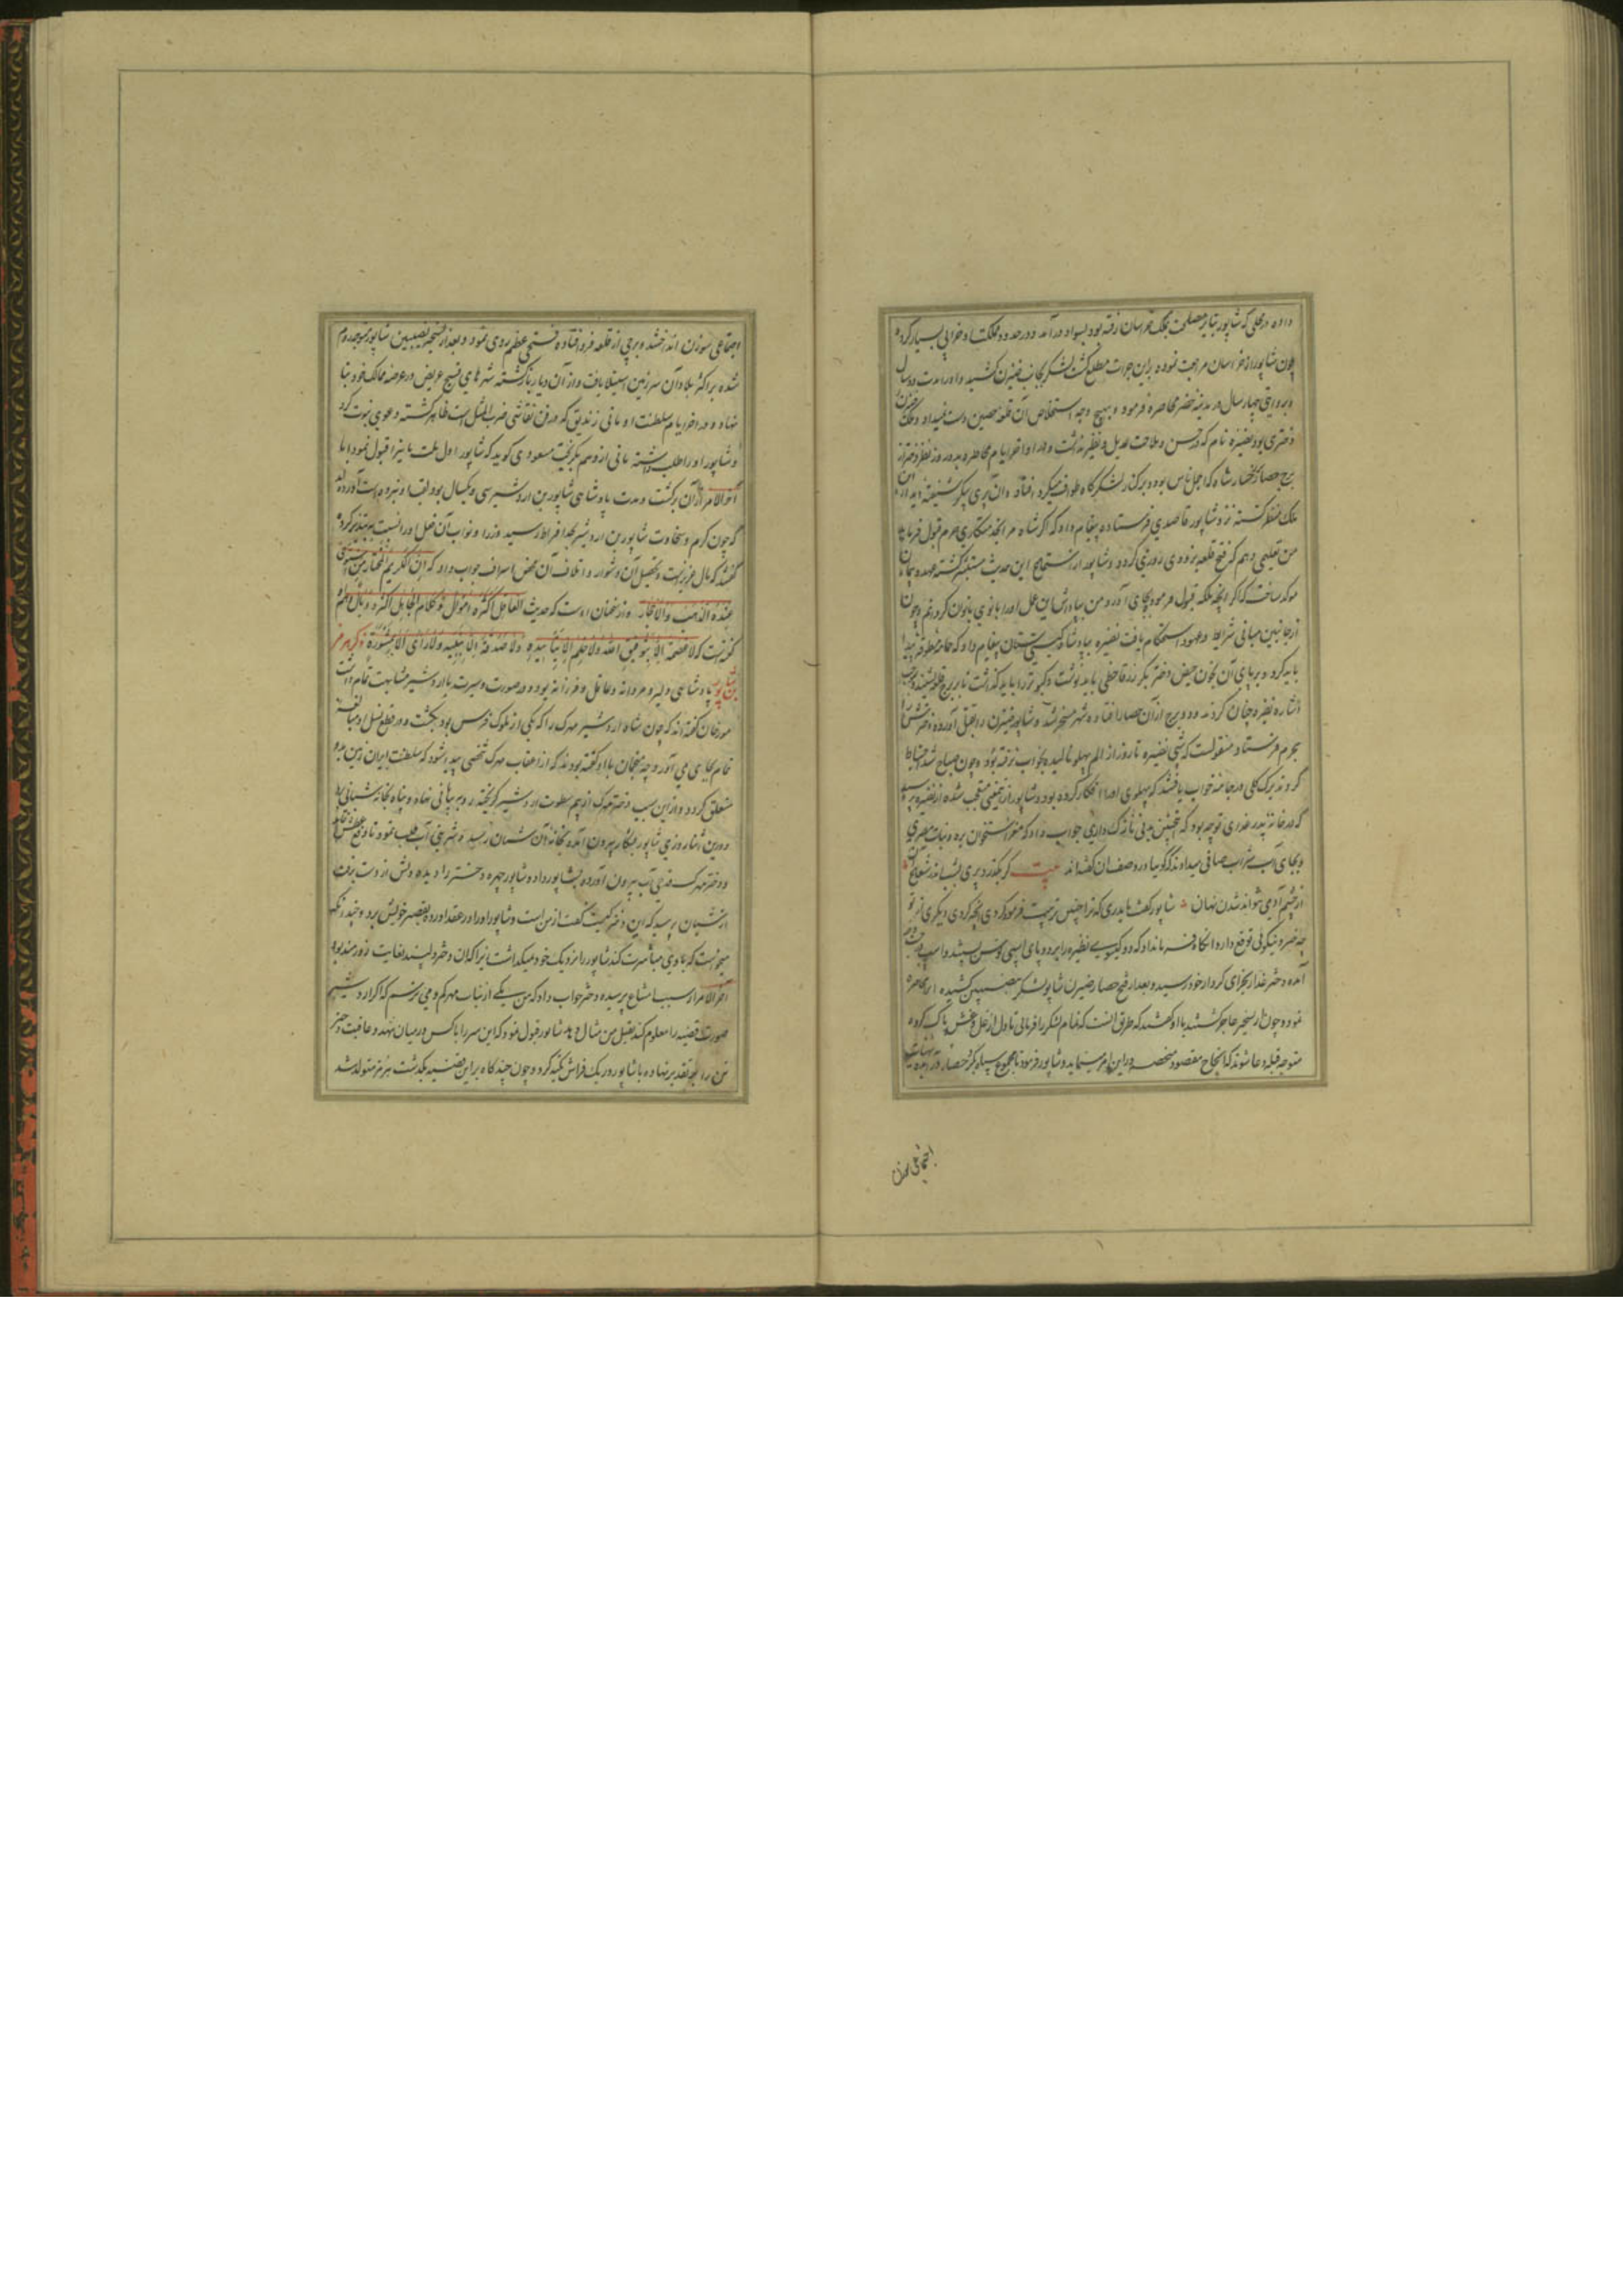 داده در محلی که شاپور بنابر مصلحت بملک خراسان رفته بود بسواد درآمد و در حدود مملکت او خرابی بسیار کرده
چون شاپور از خراسان مراجعت نموده براین جرات مطلع کشت لشکر بجانب ضیزن کشید و اورا مدت دو سال
و بروایتی چهار سال در مدینه حضر محاصره فرمود و بهیچ وجه استخلاص آن قلعه حصین دست نمیداد و ملک ضیزن
دختری بود نضیره نام که در حسن و ملاحت عدیل و نظیر نداشت و در اواخر ایام محاصره پدر روزی نظر دختر از
برج حصار برخسار شاه که اجمل ناس بوده و برکنار لشکرکاه طواف میکرد افتاد و آن پری پیکر شیفته دیدار آن
ملک منظر کشته نزد شاپور قاصدی فرستاده پیغام داد که اکر شاه مرا بخدمتکاری حرم قبول فرماید
من تعلیمی دهم که فتح قلعه بزودی روزی کردد و شاپور از استماع این حدیث مستبشر کشته عهد و پیمان
موکد ساخت که اکر آنچه ملکه قبول فرموده بجای آورد من بپاداش این عمل اورا بانوی بانوان کردانم و چون
از جانبین مبانی شرایط و عهود استحکام یافت نضیره بپادشاه کیتی ستان پیغام داد که حمامه مطوقه پیدا
باید کرد و برپای آن بخون حیض دختر بکر زرقا خطی باید نوشت و کبوتر را باید کذاشت تا بر برج قلعه نشیند و بموجب
اشاره نضیره چنان کردند و دو برج از آن حصار افتاده شهر مسخر شد و شاپور ضیزن را بقتل آورده دختر ش را
بحرم فرستاد منقولست که شبی نضیره تا روز از الم پهلو نالیده بخواب نرفته بود و چون صباح شد احتیاط
کردند برک کلی در جامه خواب یافتند که پهلوی اورا افکار کرده بود و شاپور از این معنی متعجب شده از نضیره پرسید
که در خانه پدر غذای تو چه بود که چنین بدنی نازک داری جواب داد که مغز استخوان بره و نبات مصری
و بجای آب شراب صافی میدادند کوییا در وصف ان کفته‌اند بیت کر بکذرد پری بشب اندر شعاع
از چشم آدمی نتواند شدن نهان شاپور کفت با پدری که ترا چنین تربیت فرمود کردی آنچه کردی دیکری از تو
چه خیر و نیکویی توقع دارد آنکاه فرمان داد که دو کیسوی نضیره را بر دو پای اسپی توسن بستند و اسپ بدشت در
آمده دختر غدار بجزای کردار خود رسید و بعد از فتح حصار ضیزن شاپور لشکر بنصیبین کشیده آنرا محاصره
نمود و چون از تسخیر عاجز کشتند با او کفتند که طریق آنست که تمام لشکر را فرمایی تا دل از غل و غش پاک کرده
متوجه قبله دعا شوند که انجاح مقصود منحصر در این امر مینماید و شاپور فرمود تا مجموع سپاه بکرد حصار درآمده بهیات
اجتماعی سوزن
اجتماعی سوزن انداختند و برجی از قلعه فرو افتاده فتحی عظیم روی نمود و بعد از فتح نصیبین شاپور متوجه روم
شده بر اکثر بلاد آن سرزمین استیلا یافت و از آن دیار بازکشته شهرهای فسیح عریض در عرصه ممالک خود بنا
نهاد و در اواخر ایام سلطنت او مانی زندیق که در فن نقاشی ضرب المثل است ظاهر کشته دعوی نبوت کرد
و شاپور اورا طلب داشته مانی از وهم بکریخت مسعودی کوید که شاپور اول ملت مانی را قبول نمود اما
آخر الامر از آن برکشت و مدت پادشاهی شاپور بن اردشیر سی و یکسال بود لقب او نبرده است آورده‌اند
که چون کرم و سخاوت شاپور بن اردشیر بحد افراط رسید وزرا و نواب آن فعل اورا نسبت به تبذیر کرده
کفتند که مال عزیز است و تحصیل آن دشوار و اتلاف آن محض اسراف جواب داد که ان الکریم المختار من استوی
عنده الذهب والاحجار و از سخنان اوست که حدیث العاقل اکثره امثال و کلام الجاهل اکثره وبال و هم
کفته است که لا عصمة الا بتوفیق الله ولا حلم الا بتأییده ولا صدقة الا بنیة ولا رای الا بمشورة ذکر هرمز
بن شاپور پادشاهی دلیر و مردانه و عاقل و فرزانه بود و در صورت و سیرت باردشیر مشابهت تمام داشت
مورخان کفته‌اند که چون شاه اردشیر مهرک را که یکی از ملوک فرس بود بکشت و در قطع نسل او مبالغه
تمام بجای می آورد چه منجمان با او کفته بودند که از اعقاب مهرک شخصی پیدا شود که سلطنت ایران زمین بدو
متعلق کردد و از این سبب دختر مهرک از بیم سطوت اردشیر کریخته رو به بیابانی نهاد و پناه بخانه شبانی برد
در این اثنا روزی شاپور بشکار بیرون آمده بخانه آن شبان رسید و شربتی آب طلب نمود تا دفع عطش نماید
و دختر مهرک قدحی آب بیرون آورده بشاپور داد و شاپور چهره دختر را دیده دلش از دست برفت
از شبان پرسید که این دختر کیست کفت از من است و شاپور اورا در عقد آورده بقصر خویش برد و چندانکه
میخواست که با وی مباشرت کند شاپور را نزدیک خود نمیکذاشت زیرا که آن دختر دلپسند بغایت زورمند بود
آخر الامر از سبب امتناع پرسیده دختر جواب داد که من یکی از بنات مهرکم و می ترسم که اکر اردشیر
صورت قضیه را معلوم کند بقتل من مثال دهد شاپور قبول نمود که این سر را با کس در میان ننهد و عاقبت دختر
تن را به تقدیر نهاده با شاپور در یک فراش تکیه کرد و چون چند کاه بر این قضیه بکذشت هرمز متولد شد